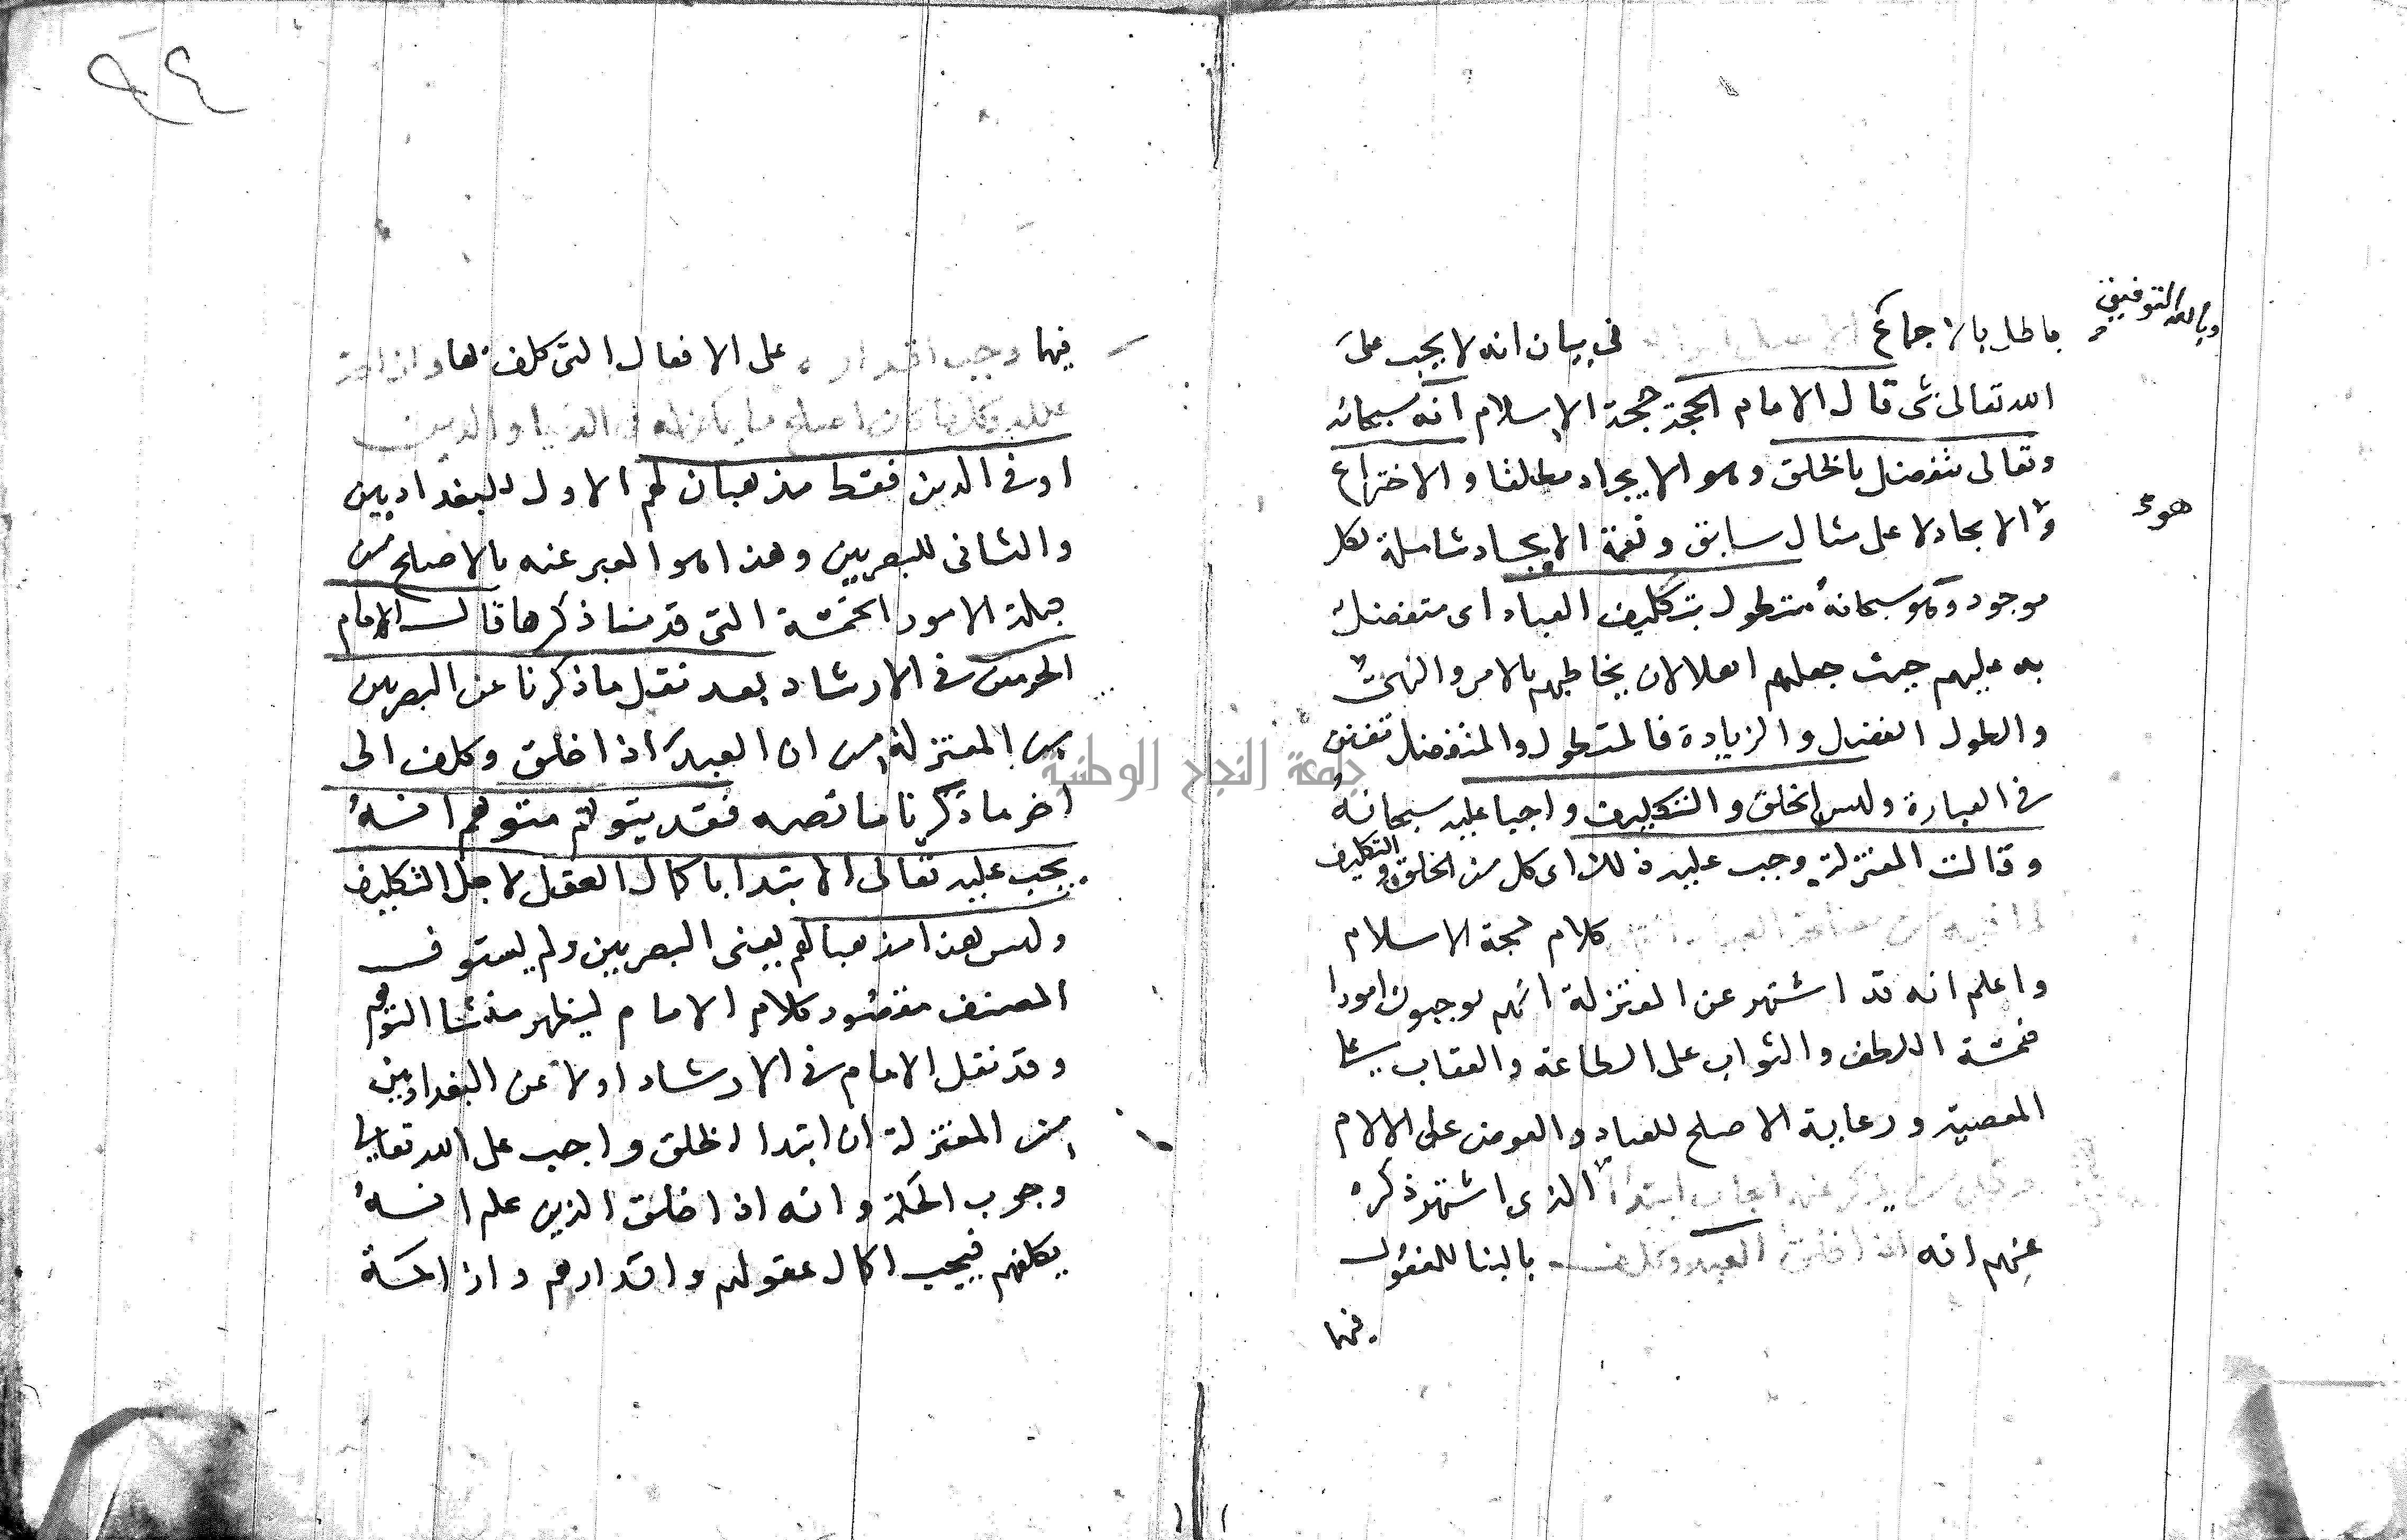 وبالله التوفيق
باطل بالاجماع في بيان انه لا يجب على
الله تعالى شي قال الامام الحجة حجة الاسلام انه سبحانه
وتعالى متفضل بالخلق وهو الايجاد مطلقا والاختراع
هو
والايجاد لا على مثال سابق ونعمة الايجاد شاملة لكل
موجود وهو سبحانه متطول بتكليف العباد اى متفضل
به عليهم حيث جعلهم اهلا لان يخاطبهم بالامر والنهى
والطول الفضل والزيادة فالمتطول والمتفضل تفنن
في العبارة وليس الخلق والتكليف واجبا عليه سبحانه
وقالت المعتزلة وجب عليه ذلك اى كل من الخلق والتكليف
لما فيه من كلام حجة الاسلام
واعلم انه قد اشتهر عن المعتزلة انهم يوجبون امورا
خمسة اللطف والثواب على الطاعة والعقاب على
المعصية ورعاية الاصلح للعباد والعوض على الالام
ايجاب ابتدا الذى اشتهر ذكره
عنهم انه اذا خلق العبد وكلف بالبنا للمفعول
فيها
٩٤
فيها وجب اقداره على الافعال التى كلف بها وازاحة
علله وكل ما كان اصلح ما يكون له في الدنيا والدين
او في الدين فقط مذهبان لهم الاول للبغداديين
والثانى للبصريين وهذا هو المعبر عنه بالاصلح من
جملة الامور الخمسة التى قدمنا ذكرها قال الامام
الحرمين في الارشاد بعد نقل ما ذكرنا عن البصريين
من المعتزلة من ان العبد اذا خلق وكلف الى
اخر ما ذكرنا ما نصه فقد يتوهم متوهم انه
يجب عليه تعالى الابتدا باكمال العقل لاجل التكليف
وليس هذا مذهبا لهم يعنى البصريين ولم يستوف
المصنف مقصود كلام الامام ليظهر منشا التوهم
وقد نقل الامام في الارشاد اولا عن البغداديين
من المعتزلة ان ابتدا الخلق واجب على الله تعالى
وجوب الحكمة وانه اذا خلق الذين علم انه
يكلفهم فيجب اكمال عقولهم واقدارهم وازاحة
جامعة النجاح الوطنية